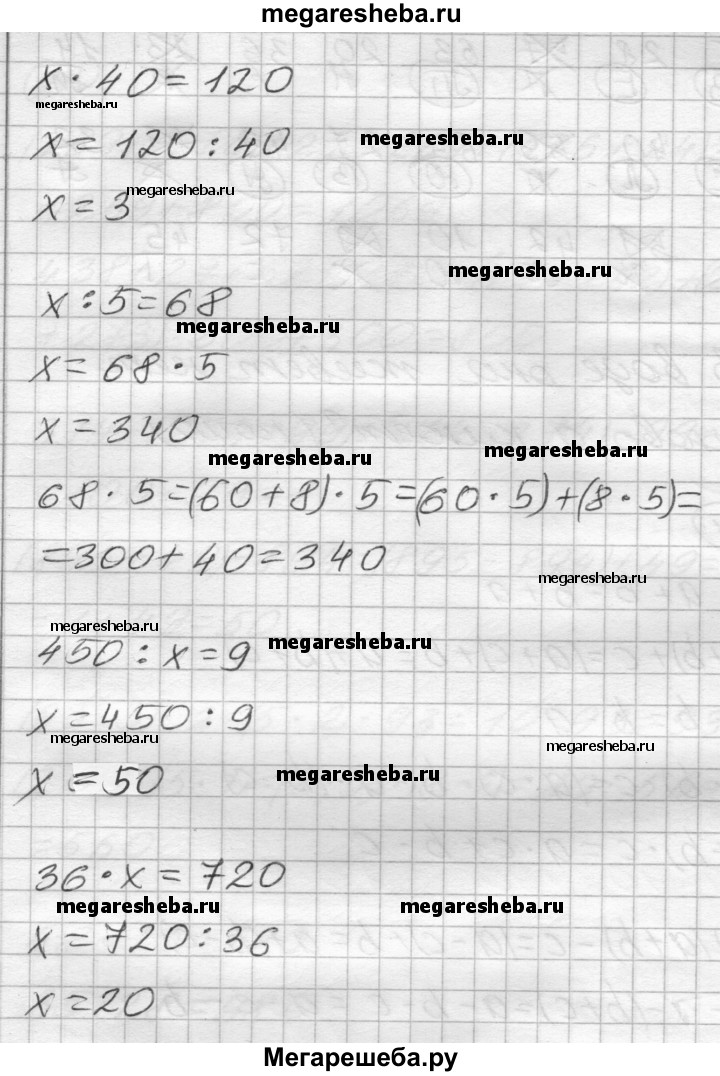 megaresheba.ru
x · 40 = 120
megaresheba.ru
x = 120 : 40 megaresheba.ru
megaresheba.ru
x = 3
megaresheba.ru
x : 5 = 68
megaresheba.ru
x = 68 · 5
x = 340
megaresheba.ru megaresheba.ru
68 · 5 = (60 + 8) · 5 = (60 · 5) + (8 · 5) =
= 300 + 40 = 340
megaresheba.ru
megaresheba.ru
450 : x = 9 megaresheba.ru
x = 450 : 9
megaresheba.ru megaresheba.ru
x = 50 megaresheba.ru
36 · x = 720
megaresheba.ru megaresheba.ru
x = 720 : 36
x = 20
Мегарешеба.ру